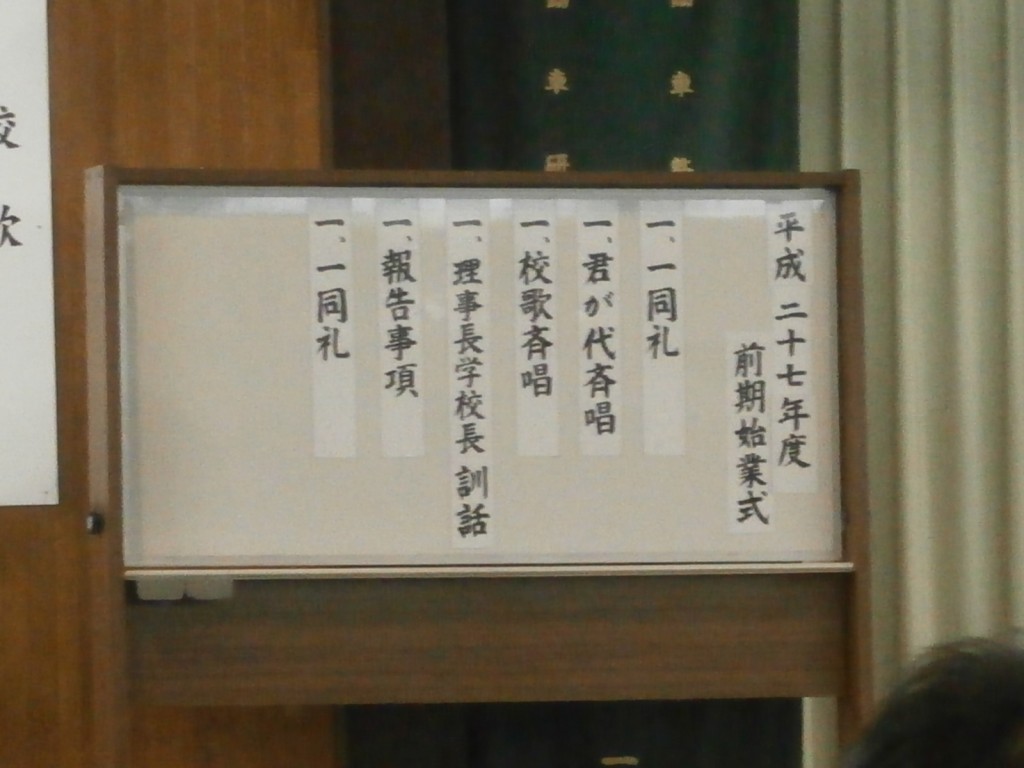 平成二十七年度
前期始業式
一、一同礼
一、君が代斉唱
一、校歌斉唱
一、理事長学校長訓話
一、報告事項
一、一同礼
校歌